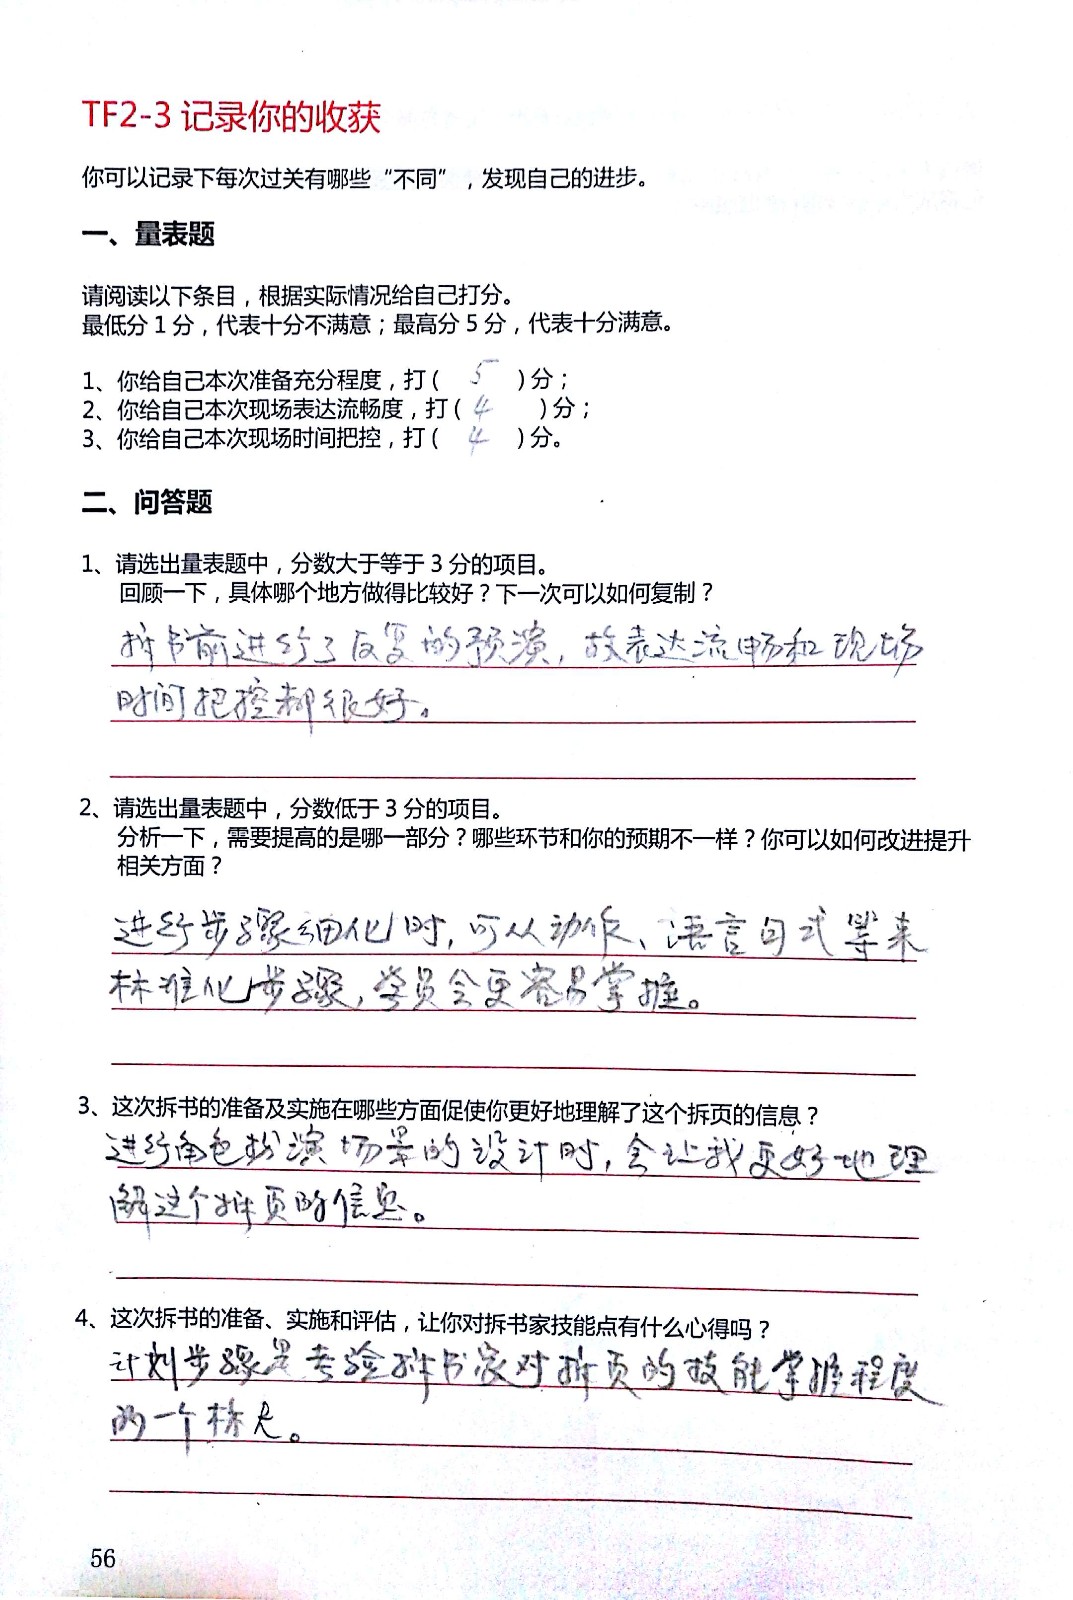 TF2-3 记录你的收获
你可以记录下每次过关有哪些“不同”，发现自己的进步。
一、量表题
请阅读以下条目，根据实际情况给自己打分。
最低分 1 分，代表十分不满意；最高分 5 分，代表十分满意。
1、你给自己本次准备充分程度，打( 5 )分；
2、你给自己本次现场表达流畅度，打( 4 )分；
3、你给自己本次现场时间把控，打( 4 )分。
二、问答题
1、请选出量表题中，分数大于等于 3 分的项目。
回顾一下，具体哪个地方做得比较好？下一次可以如何复制？
拆书前进行了反复的预演，故表达流畅和现场
时间把控都很好。
2、请选出量表题中，分数低于 3 分的项目。
分析一下，需要提高的是哪一部分？哪些环节和你的预期不一样？你可以如何改进提升
相关方面？
进行步骤细化时，可从动作、语言句式等来
标准化步骤，学员会更容易掌握。
3、这次拆书的准备及实施在哪些方面促使你更好地理解了这个拆页的信息？
进行角色扮演场景的设计时，会让我更好地理
解这个拆页的信息。
4、这次拆书的准备、实施和评估，让你对拆书家技能点有什么心得吗？
计划步骤是考验拆书家对拆页的技能掌握程度
的一个标尺。
56